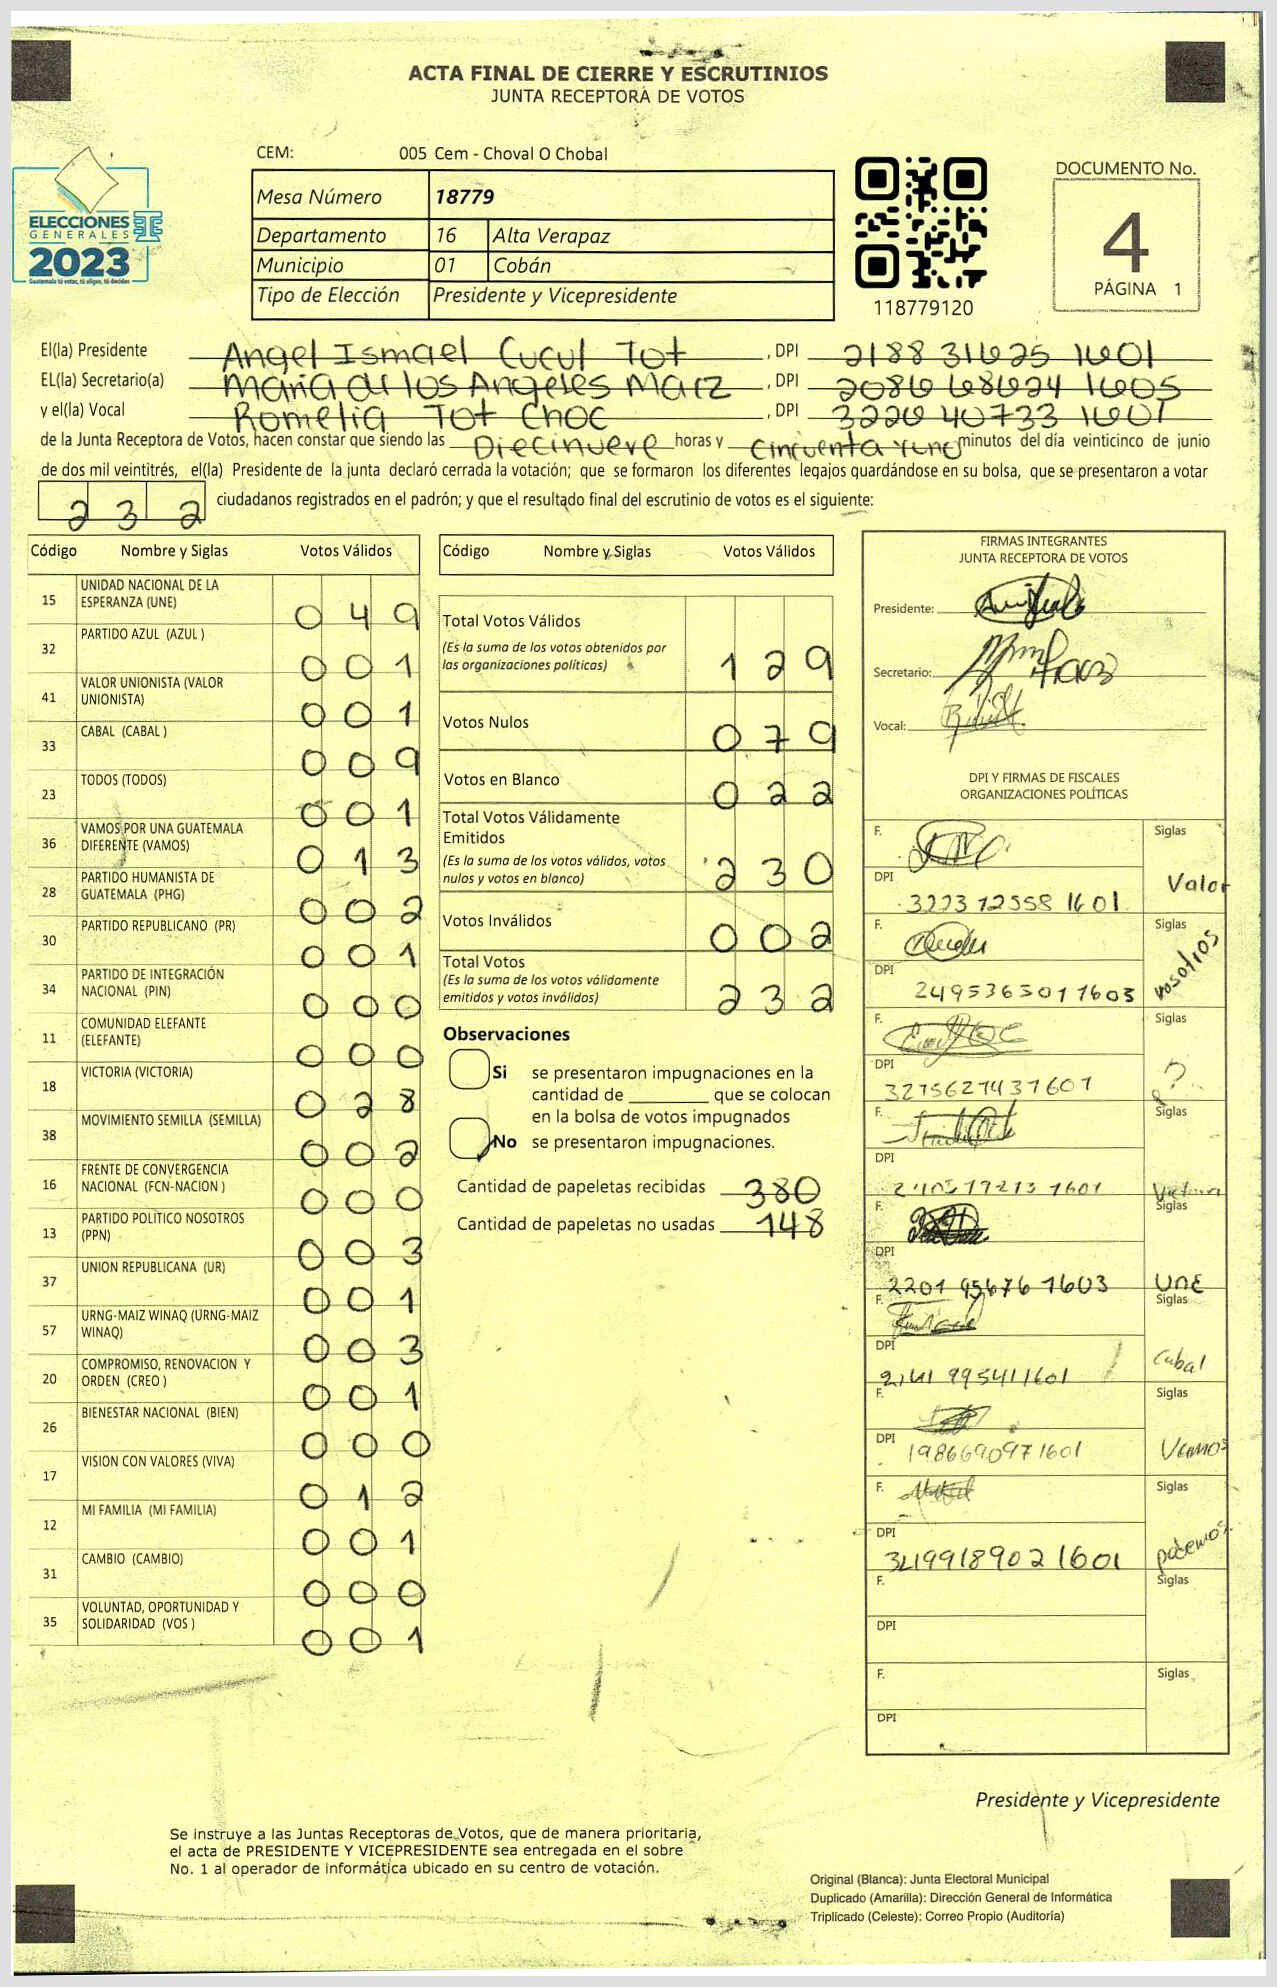 ACTA FINAL DE CIERRE Y ESCRUTINIOS
JUNTA RECEPTORA DE VOTOS
CEM: 005 Cem - Choval O Chobal
ELECCIONES
GENERALES
2023
Guatemala tú votas, tú eliges, tú decides
Mesa Número 18779
Departamento 16 Alta Verapaz
Municipio 01 Cobán
Tipo de Elección Presidente y Vicepresidente
118779120
DOCUMENTO No.
4
PÁGINA 1
El(la) Presidente Angel Ismael Cucul Tot , DPI 2188 31625 1601
EL(la) Secretario(a) Maria de los Angeles Maaz , DPI 2086 68624 1605
y el(la) Vocal Romelia Tot Choc , DPI 3220 40733 1601
de la Junta Receptora de Votos, hacen constar que siendo las Diecinueve horas y cincuenta y uno minutos del día veinticinco de junio
de dos mil veintitrés, el(la) Presidente de la junta declaró cerrada la votación; que se formaron los diferentes legajos guardándose en su bolsa, que se presentaron a votar
232 ciudadanos registrados en el padrón; y que el resultado final del escrutinio de votos es el siguiente:
Código Nombre y Siglas Votos Válidos
15 UNIDAD NACIONAL DE LA
ESPERANZA (UNE) 049
32 PARTIDO AZUL (AZUL ) 001
41 VALOR UNIONISTA (VALOR
UNIONISTA) 001
33 CABAL (CABAL ) 009
23 TODOS (TODOS) 001
36 VAMOS POR UNA GUATEMALA
DIFERENTE (VAMOS) 013
28 PARTIDO HUMANISTA DE
GUATEMALA (PHG) 002
30 PARTIDO REPUBLICANO (PR) 001
34 PARTIDO DE INTEGRACIÓN
NACIONAL (PIN) 000
11 COMUNIDAD ELEFANTE
(ELEFANTE) 000
18 VICTORIA (VICTORIA) 028
38 MOVIMIENTO SEMILLA (SEMILLA) 002
16 FRENTE DE CONVERGENCIA
NACIONAL (FCN-NACION ) 000
13 PARTIDO POLITICO NOSOTROS
(PPN) 003
37 UNION REPUBLICANA (UR) 001
57 URNG-MAIZ WINAQ (URNG-MAIZ
WINAQ) 003
20 COMPROMISO, RENOVACION Y
ORDEN (CREO ) 001
26 BIENESTAR NACIONAL (BIEN) 000
17 VISION CON VALORES (VIVA) 012
12 MI FAMILIA (MI FAMILIA) 001
31 CAMBIO (CAMBIO) 000
35 VOLUNTAD, OPORTUNIDAD Y
SOLIDARIDAD (VOS ) 001
Código Nombre y Siglas Votos Válidos
Total Votos Válidos
(Es la suma de los votos obtenidos por
las organizaciones políticas) 129
Votos Nulos 079
Votos en Blanco 022
Total Votos Válidamente
Emitidos
(Es la suma de los votos válidos, votos
nulos y votos en blanco) 230
Votos Inválidos 002
Total Votos
(Es la suma de los votos válidamente
emitidos y votos inválidos) 232
Observaciones
Si se presentaron impugnaciones en la
cantidad de ________ que se colocan
en la bolsa de votos impugnados
No se presentaron impugnaciones.
Cantidad de papeletas recibidas 380
Cantidad de papeletas no usadas 148
FIRMAS INTEGRANTES
JUNTA RECEPTORA DE VOTOS
Presidente:
Secretario:
Vocal:
DPI Y FIRMAS DE FISCALES
ORGANIZACIONES POLÍTICAS
F. Siglas
DPI 3223 12558 1601 Valor
F. Siglas
DPI 2495363011603 nosotros
F. Siglas
DPI 3275627431601 ?
F. Siglas
DPI Victoria
F. Siglas
DPI 2201 95676 1603 UNE
F. Siglas
DPI 2141 99541 1601 Cabal
F. Siglas
DPI 1986690971601 Vamos
F. Siglas
DPI 3419918902 1601 podemos
F. Siglas
DPI
F. Siglas
DPI
Presidente y Vicepresidente
Se instruye a las Juntas Receptoras de Votos, que de manera prioritaria,
el acta de PRESIDENTE Y VICEPRESIDENTE sea entregada en el sobre
No. 1 al operador de informática ubicado en su centro de votación.
Original (Blanca): Junta Electoral Municipal
Duplicado (Amarilla): Dirección General de Informática
Triplicado (Celeste): Correo Propio (Auditoría)